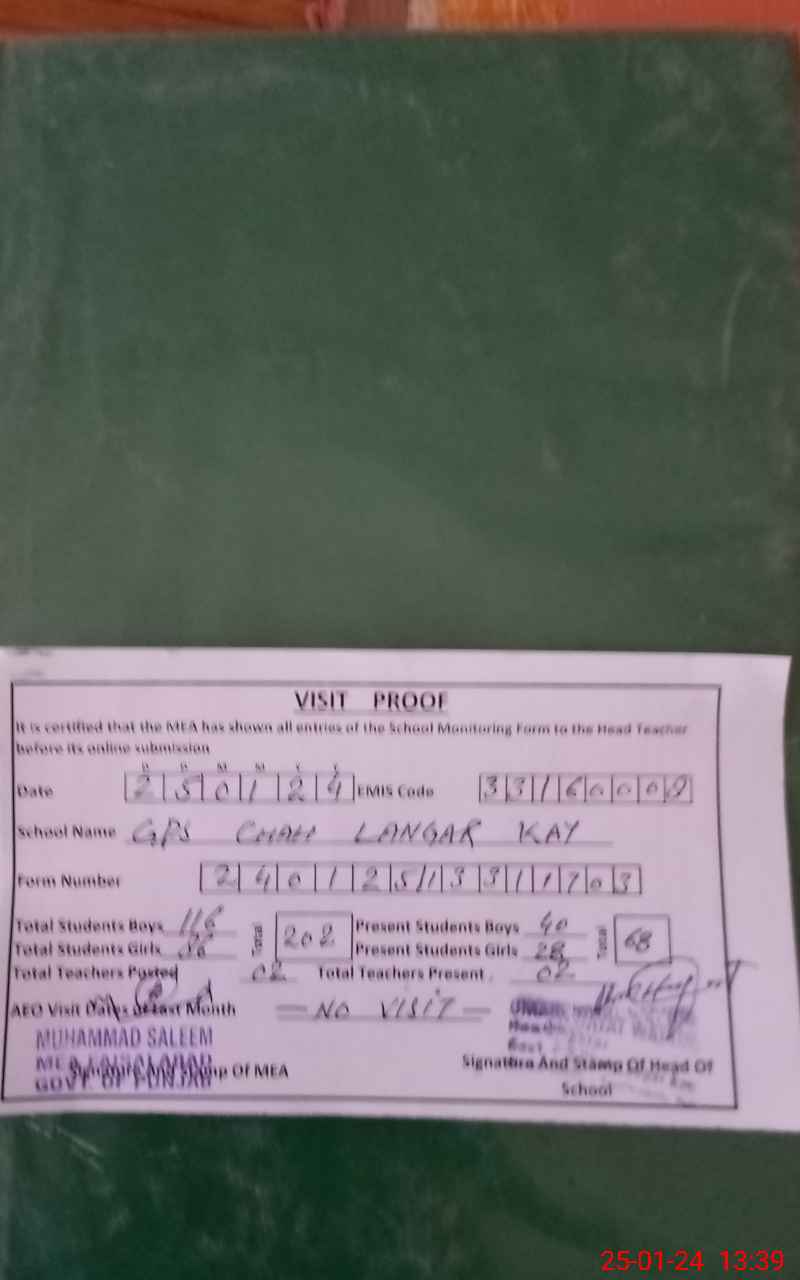 VISIT PROOF
It is certified that the MEA has shown all entries of the School Monitoring Form to the Head Teacher
before its online submission
D D M M Y Y
Date 2 5 0 1 2 4 EMIS Code 3 3 1 6 0 0 0 9
School Name GPS CHAH LANGAR KAY
Form Number 2 4 0 1 2 5 1 3 3 1 1 7 0 3
Total Students Boys 116 Total 202 Present Students Boys 40 Total 68
Total Students Girls 86 Present Students Girls 28
Total Teachers Posted 02 Total Teachers Present 02
AEO Visit Dates of Last Month — NO VISIT —
MUHAMMAD SALEEM
MEA FAISALABAD
GOVT OF PUNJAB
Signature And Stamp Of MEA
Signature And Stamp Of Head Of
School
25-01-24 13:39